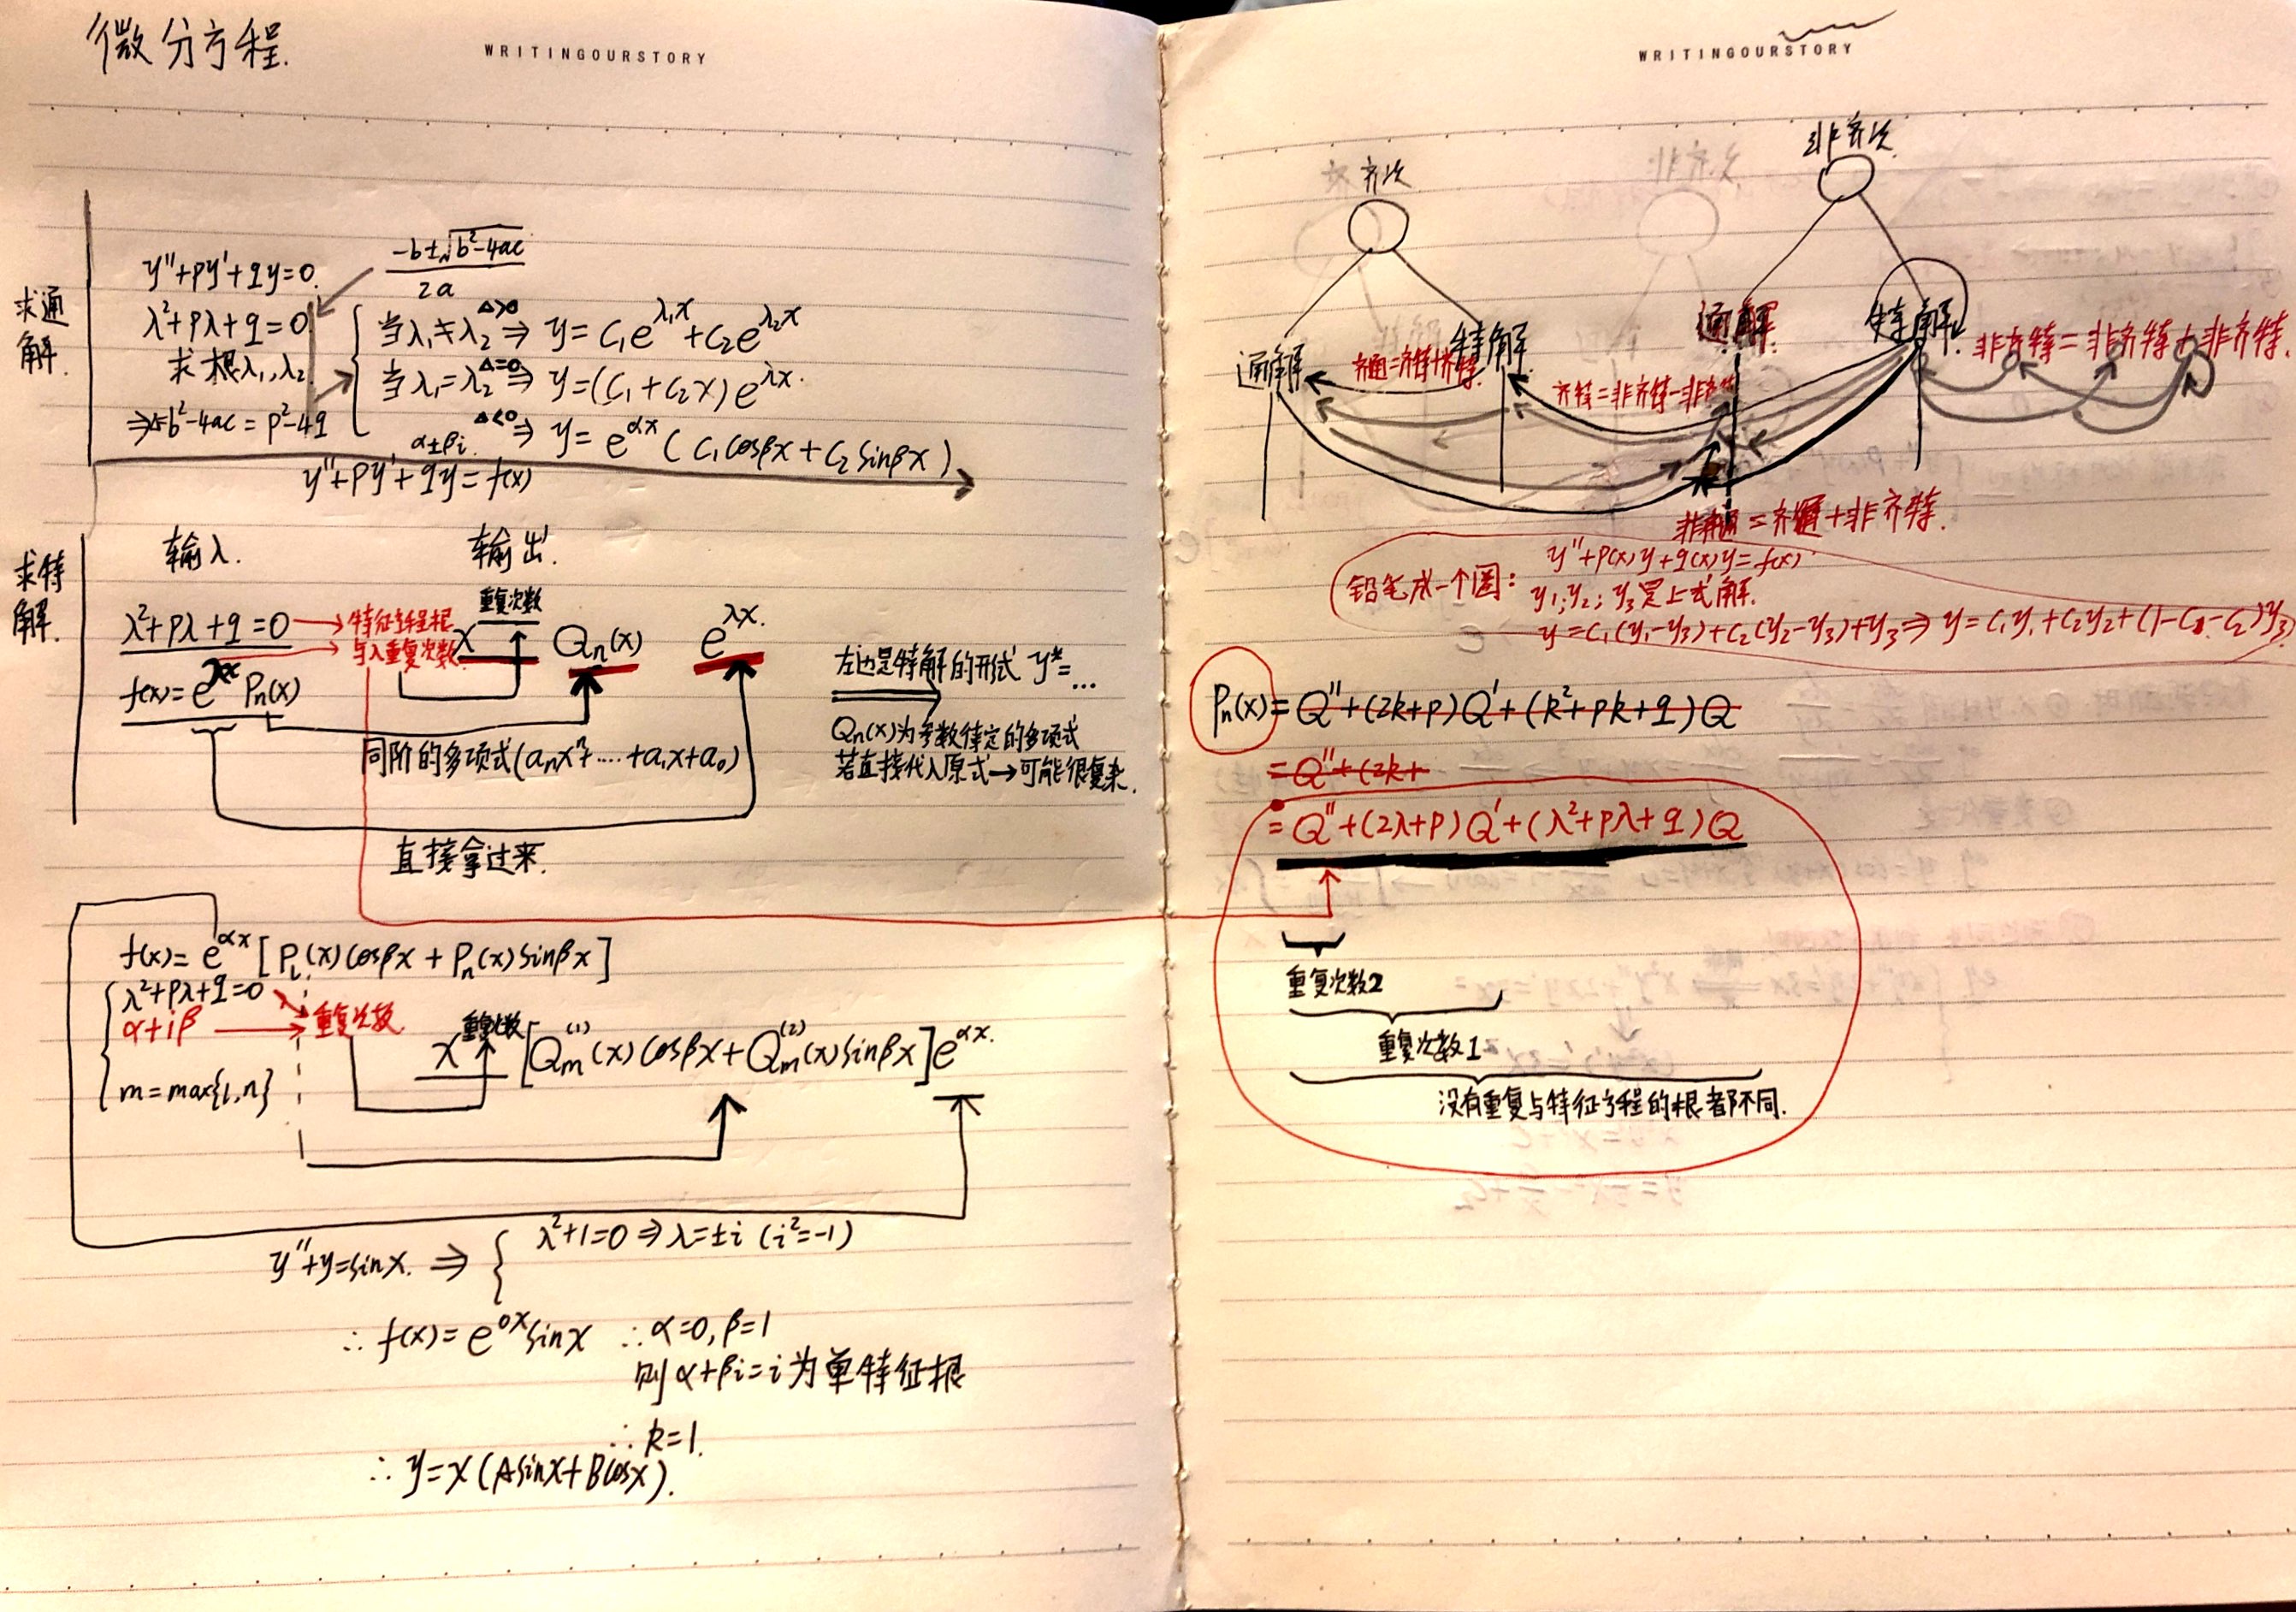 微分方程.
WRITINGOURSTORY
求通解.
y''+py'+qy=0.
λ²+pλ+q=0
求根λ₁,λ₂
⇒Δ=b²-4ac=p²-4q
(-b±√(b²-4ac))/2a
当λ₁≠λ₂ Δ>0 ⇒ y=C₁e^{λ₁x}+C₂e^{λ₂x}
当λ₁=λ₂ Δ=0 ⇒ y=(C₁+C₂x)e^{λx}.
α±βi Δ<0 ⇒ y=e^{αx}(C₁cosβx+C₂sinβx)
y''+py'+qy=f(x)
求特解.
输入. 输出.
λ²+pλ+q=0 → 特征方程根与λ重复次数
x^{重复次数} Qn(x) e^{λx}.
f(x)=e^{λx}Pn(x)
左边是特解的形式 y*=...
Qn(x)为参数待定的多项式
若直接代入原式→可能很复杂.
同阶的多项式(anxⁿ+....+a₁x+a₀)
直接拿过来.
f(x)=e^{αx}[Pl(x)cosβx+Pn(x)sinβx]
λ²+pλ+q=0
α+iβ → 重复次数
x^{重复次数}[Qm⁽¹⁾(x)cosβx+Qm⁽²⁾(x)sinβx]e^{αx}.
m=max{l,n}
y''+y=sinx. ⇒ { λ²+1=0⇒λ=±i (i²=-1)
∴f(x)=e^{0x}sinx ∴α=0,β=1
则α+βi=i为单特征根
∴k=1.
∴y=x(Asinx+Bcosx).
WRITINGOURSTORY
齐次 非齐次
通解 特解 通解. 特解.
齐通=齐特+齐特.
齐特=非齐特-非齐特
非齐特=非齐特+非齐特.
非齐通=齐通+非齐特.
铅笔成一个圈:
y''+p(x)y+q(x)y=f(x)
y₁;y₂;y₃是上式解.
y=C₁(y₁-y₃)+C₂(y₂-y₃)+y₃⇒y=C₁y₁+C₂y₂+(1-C₁-C₂)y₃.
Pn(x)=Q''+(2k+p)Q'+(k²+pk+q)Q
=Q''+(2k+
=Q''+(2λ+p)Q'+(λ²+pλ+q)Q
重复次数2
重复次数1
没有重复与特征方程的根都不同.